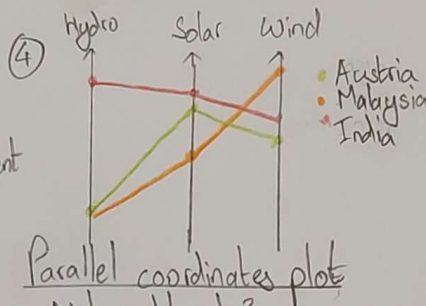 ④
Hydro Solar Wind
Austria
Malaysia
India
Parallel coordinates plot